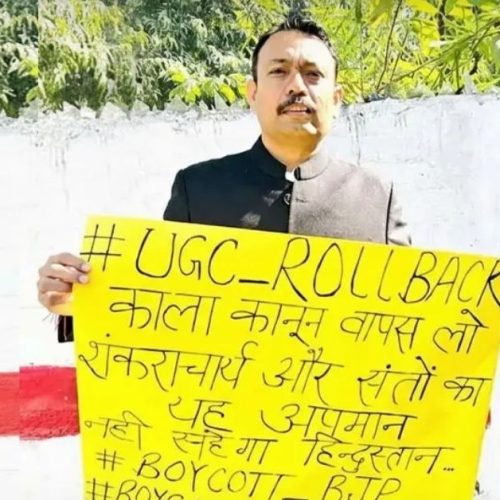 #UGC_ROLLBACK
काला कानून वापस लो
शंकराचार्य और संतों का
यह अपमान
नही सहेगा हिन्दुस्तान...
# BOYCOTT_BJP